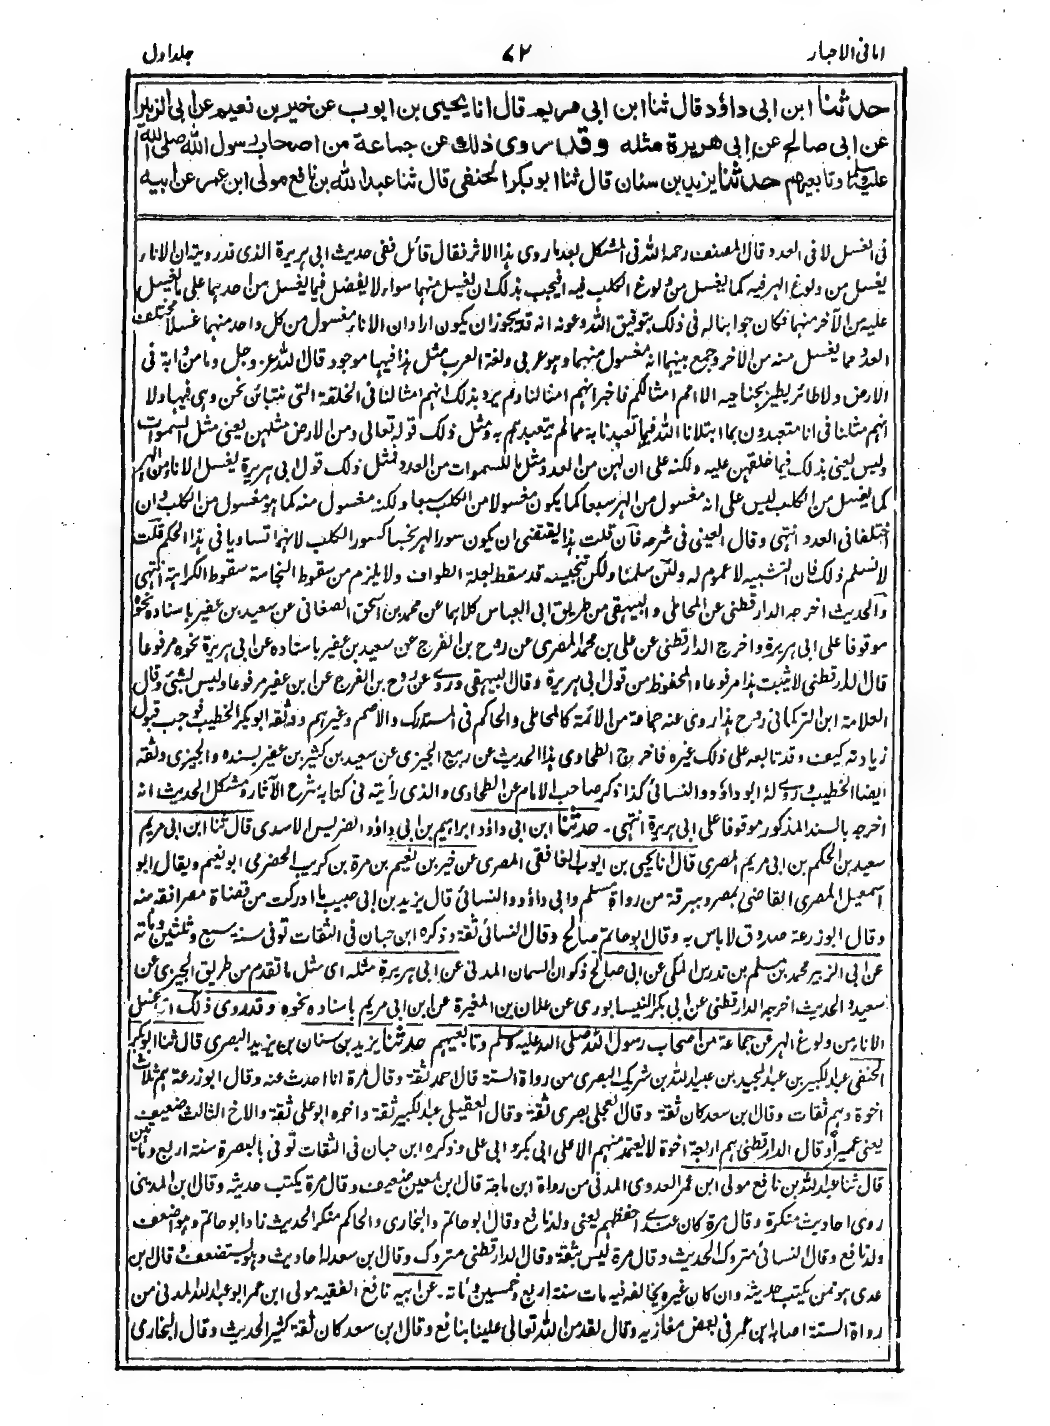 امانی الاحبار ۷۲ جلد اول
حدثنا ابن ابی داؤد قال ثنا ابن ابی مریم قال انا یحیی بن ایوب عن خیر بن نعیم عن ابی الزبیر
عن ابی صالح عن ابی هریرة مثله وقد روی ذلك عن جماعة من اصحاب رسول الله صلی الله
علیه وسلم وتابعیهم حدثنا یزید بن سنان قال ثنا ابو بکر الحنفی قال ثنا عبد الله بن نافع مولی ابن عمر عن ابیه
فی الغسل لا فی العدد وقال المصنف رحمه الله فی المشکل بعد ما روی هذا الاثر فقال قائل ففی حدیث ابی هریرة الذی قد رویته ان الاناء
یغسل من ولوغ الهر فیه کما یغسل من ولوغ الکلب فیه افیجب بذلک ان یغسل منهما سواء لا یفضل فیما یغسل من احدهما علی ما یغسل
علیه من الآخر منهما فکان جوابنا له فی ذلک بتوفیق الله وعونه انه قد یجوز ان یکون اراد ان الاناء مغسول من کل واحد منهما غسلا مختلف
العدد مما یغسل منه من الآخر وجمع بینهما انه مغسول منهما وهو عربی ولغة العرب مثل هذا فیها موجود قال الله عز وجل وما من دابة فی
الارض ولا طائر یطیر بجناحیه الا امم امثالکم فاخبر انهم امثالنا ولم یرد بذلک انهم امثالنا فی الخلقة التی نتبائن نحن وهی فیها ولا
انهم مثلنا فی انا متعبدون بما ابتلانا الله فیما تعبدنا به مما لم یتعبدهم به ومثل ذلک قوله تعالی ومن الارض مثلهن یعنی مثل السموات
ولیس یعنی بذلک فیما خلقهن علیه ولکنه علی ان لهن من العدد مثل ما للسموات من العدد فمثل ذلک قول ابی هریرة یغسل الاناء من الهر
کما یغسل من الکلب لیس علی انه مغسول من الهر سبعا کما یکون مغسولا من الکلب سبعا ولکنه مغسول منه کما هو مغسول من الکلب وان
اختلفا فی العدد انتهی وقال العینی فی شرحه فان قلت هذا یقتضی ان یکون سور الهر نجسا کسور الکلب لانهما تساویا فی هذا الحکم قلت
لا نسلم ذلک فان التشبیه لا عموم له ولئن سلمنا ولکن تنجیسه قد سقط لعلة الطواف ولا یلزم من سقوط النجاسة سقوط الکراهة انتهی
والحدیث اخرجه الدارقطنی عن المحاملی والبیهقی من طریق ابی العباس کلاهما عن محمد بن اسحق الصغانی عن سعید بن عفیر باسناده نحوه
موقوفا علی ابی هریرة واخرج الدارقطنی عن علی بن محمد المصری عن روح بن الفرج عن سعید بن عفیر باسناده عن ابی هریرة نحوه مرفوعا
قال الدارقطنی لا یثبت هذا مرفوعا والمحفوظ من قول ابی هریرة وقال البیهقی وروی عن روح بن الفرج عن ابن عفیر مرفوعا ولیس بشیٔ وقال
العلامة ابن الترکمانی روح هذا روی عنه جماعة من الائمة کالمحاملی والحاکم فی المستدرک والاصم وغیرهم ووثقه ابو بکر الخطیب فوجب قبول
زیادته کیف وقد تابعه علی ذلک غیره فاخرج الطحاوی هذا الحدیث عن ربیع الجیزی عن سعید بن کثیر بن عفیر بسنده والجیزی وثقه
ایضا الخطیب وروی له ابو داؤد والنسائی کذا ذکر صاحب الامام عن الطحاوی والذی رأیته فی کتابه شرح الآثار ومشکل الحدیث انه
اخرجه بالسند المذکور موقوفا علی ابی هریرة انتهی۔ حدثنا ابن ابی داؤد ابراهیم بن ابی داؤد الضریس الاسدی قال ثنا ابن ابی مریم
سعید بن الحکم بن ابی مریم المصری قال انا یحیی بن ایوب الغافقی المصری عن خیر بن نعیم بن مرة بن کریب الحضرمی ابو نعیم ویقال ابو
اسمعیل المصری القاضی بمصر وببرقة من رواة مسلم وابی داؤد والنسائی قال یزید بن ابی حبیب ما ادرکت من قضاة مصر افقه منه
وقال ابو زرعة صدوق لا باس به وقال ابو حاتم صالح وقال النسائی ثقة وذکره ابن حبان فی الثقات توفی سنة سبع وثلثین ومائة
عن ابی الزبیر محمد بن مسلم بن تدرس المکی عن ابی صالح ذکوان السمان المدنی عن ابی هریرة مثله ای مثل ما تقدم من طریق الجیزی عن
سعید والحدیث اخرجه الدارقطنی عن ابی بکر النیسابوری عن علان بن المغیرة عن ابن ابی مریم باسناده نحوه وقد روی ذلک ای غسل
الاناء من ولوغ الهر عن جماعة من اصحاب رسول الله صلی الله علیه وسلم وتابعیهم حدثنا یزید بن سنان بن یزید البصری قال ثنا ابو بکر
الحنفی عبد الکبیر بن عبد المجید بن عبید الله بن شریک البصری من رواة الستة قال احمد ثقة وقال مرة انا احدث عنه وقال ابو زرعة هم ثلاث
اخوة وهم ثقات وقال ابن سعد کان ثقة وقال العجلی بصری ثقة وقال العقیلی عبد الکبیر ثقة واخوه ابو علی ثقة والاخ الثالث ضعیف
یعنی عمیرا وقال الدارقطنی هم اربعة اخوة لا یعتمد منهم الا علی ابی بکر وابی علی وذکره ابن حبان فی الثقات توفی بالبصرة سنة اربع ومأتین
قال ثنا عبد الله بن نافع مولی ابن عمر العدوی المدنی من رواة ابن ماجة قال ابن معین ضعیف وقال مرة یکتب حدیثه وقال ابن المدینی
روی احادیث منکرة وقال مرة کان عندی احفظهم یعنی ولد نافع وقال ابو حاتم والبخاری والحاکم منکر الحدیث زاد ابو حاتم وهو اضعف
ولد نافع وقال النسائی متروک الحدیث وقال مرة لیس بثقة وقال الدارقطنی متروک وقال ابن سعد له احادیث وهو یستضعف وقال ابن
عدی هو ممن یکتب حدیثه وان کان غیره یخالفه فیه مات سنة اربع وخمسین ومائة۔ عن ابیه نافع الفقیه مولی ابن عمر ابو عبد الله المدنی من
رواة الستة اصابه ابن عمر فی بعض مغازیه وقال لقد من الله تعالی علینا بنافع وقال ابن سعد کان ثقة کثیر الحدیث وقال البخاری